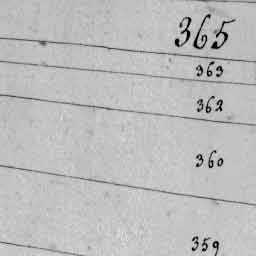 365
363
362
360
359